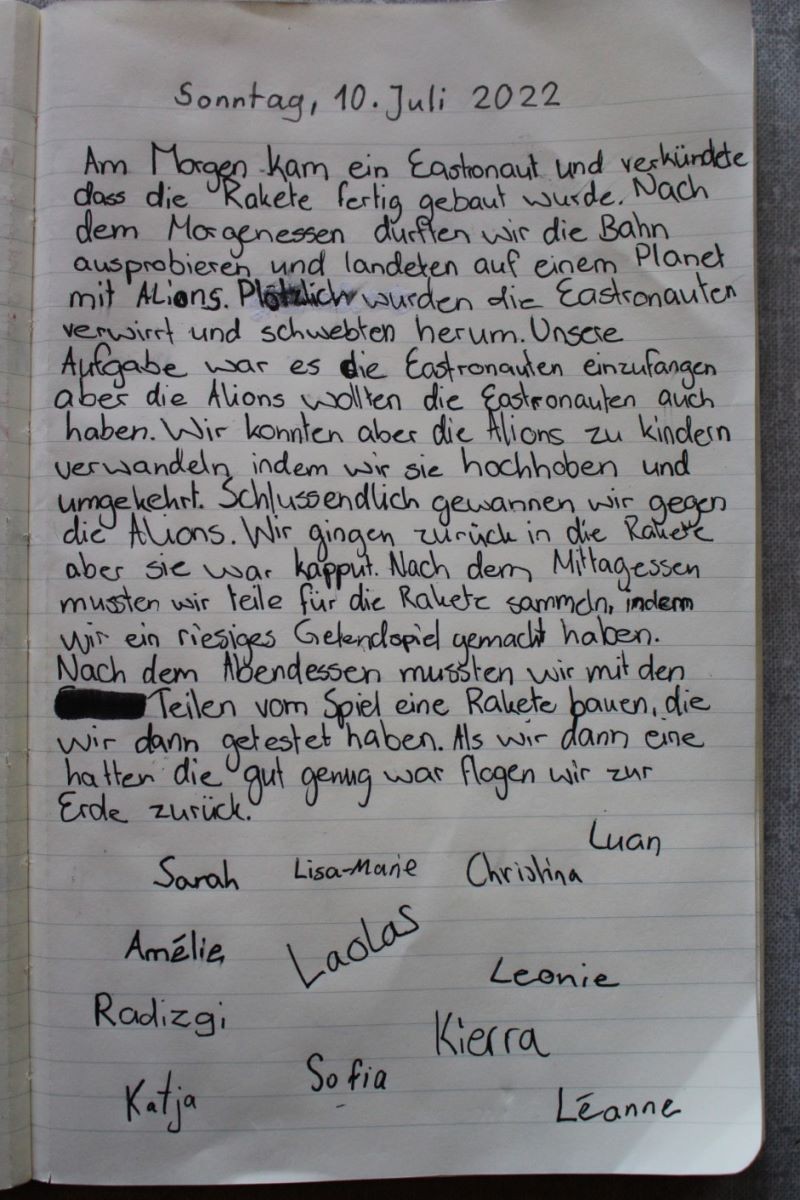 Sonntag, 10. Juli 2022
Am Morgen kam ein Eastronaut und verkündete
dass die Rakete fertig gebaut wurde. Nach
dem Morgenessen durften wir die Bahn
ausprobieren und landeten auf einem Planet
mit ALions. Plötzlich wurden die Eastronauten
verwirrt und schwebten herum. Unsere
Aufgabe war es die Eastronauten einzufangen
aber die Alions wollten die Eastronauten auch
haben. Wir konnten aber die Alions zu kindern
verwandeln, indem wir sie hochhoben und
umgekehrt. Schlussendlich gewannen wir gegen
die Alions. Wir gingen zurück in die Rakete
aber sie war kapput. Nach dem Mittagessen
mussten wir teile für die Rakete sammeln, indem
wir ein riesiges Gelendspiel gemacht haben.
Nach dem Abendessen mussten wir mit den
Teilen vom Spiel eine Rakete bauen, die
wir dann getestet haben. Als wir dann eine
hatten die gut genug war flogen wir zur
Erde zurück.
Luan
Sarah Lisa-Marie Christina
Amélie Laolas
Leonie
Radizgi
Kierra
Sofia
Katja
Léanne